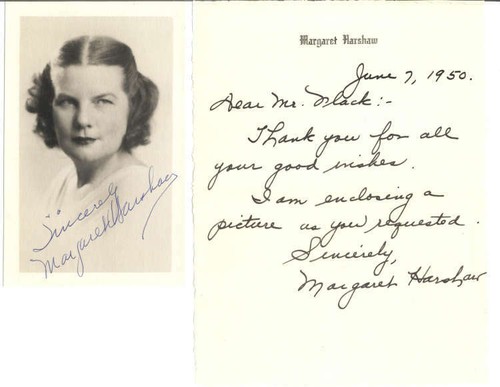 Sincerely
Margaret Harshaw
Margaret Harshaw
June 7, 1950.
Dear Mr. Flack:-
Thank you for all
your good wishes.
I am enclosing a
picture as you requested.
Sincerely,
Margaret Harshaw